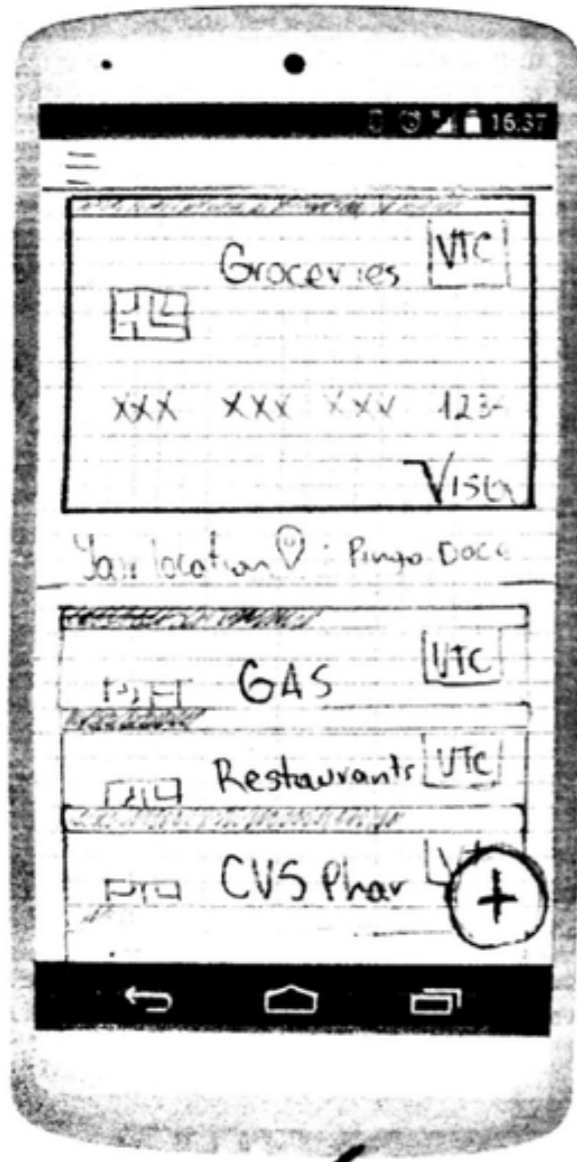 16:37
Groceries VTC
XXX XXX XXX 123
Visa
Your location : Pingo Doce
GAS VTC
Restaurants VTC
CVS Phar
+